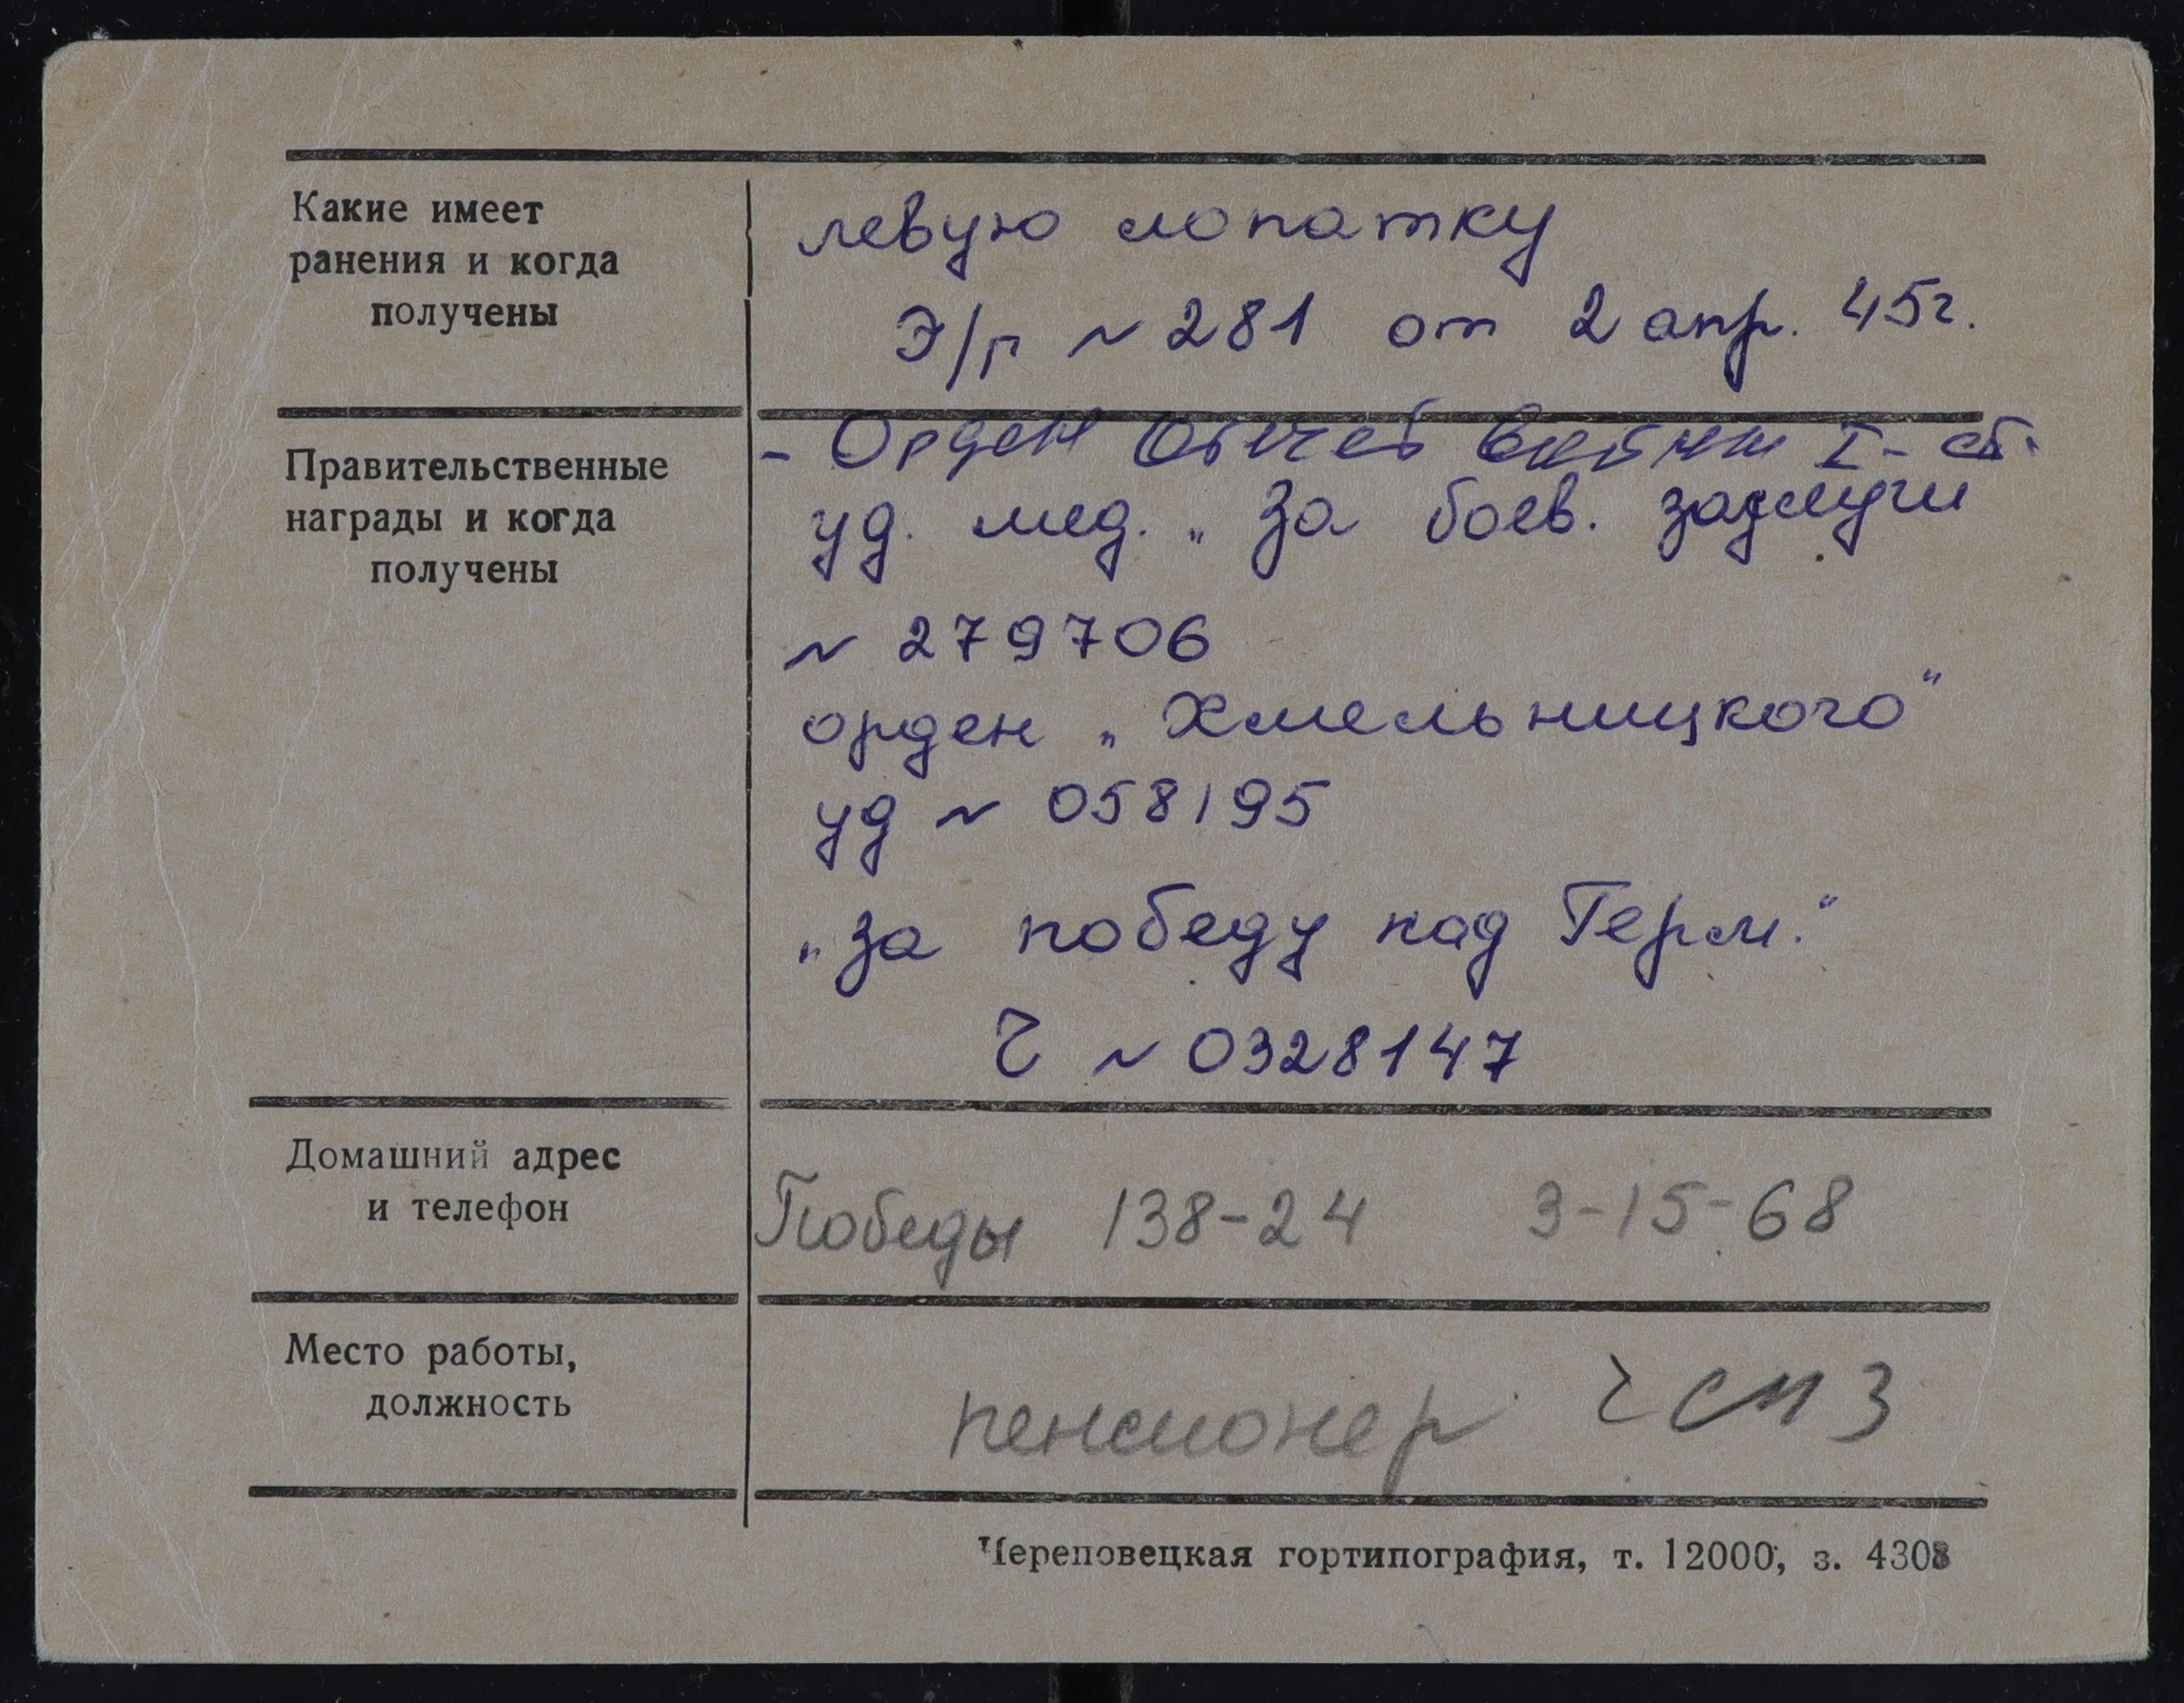 Какие имеет
ранения и когда
получены
левую лопатку
Э/г № 281 от 2 апр. 45г.
Правительственные
награды и когда
получены
- Орден Отечеств Войны I-ст.
уд. мед. „За боев. заслуги
№ 279706
орден „Хмельницкого"
уд № 058195
„За победу над Герм."
№ 0328147
Домашний адрес
и телефон
Победы 138-24 3-15-68
Место работы,
должность
пенсионер ЧСПЗ
Череповецкая гортипография, т. 12000, з. 4308